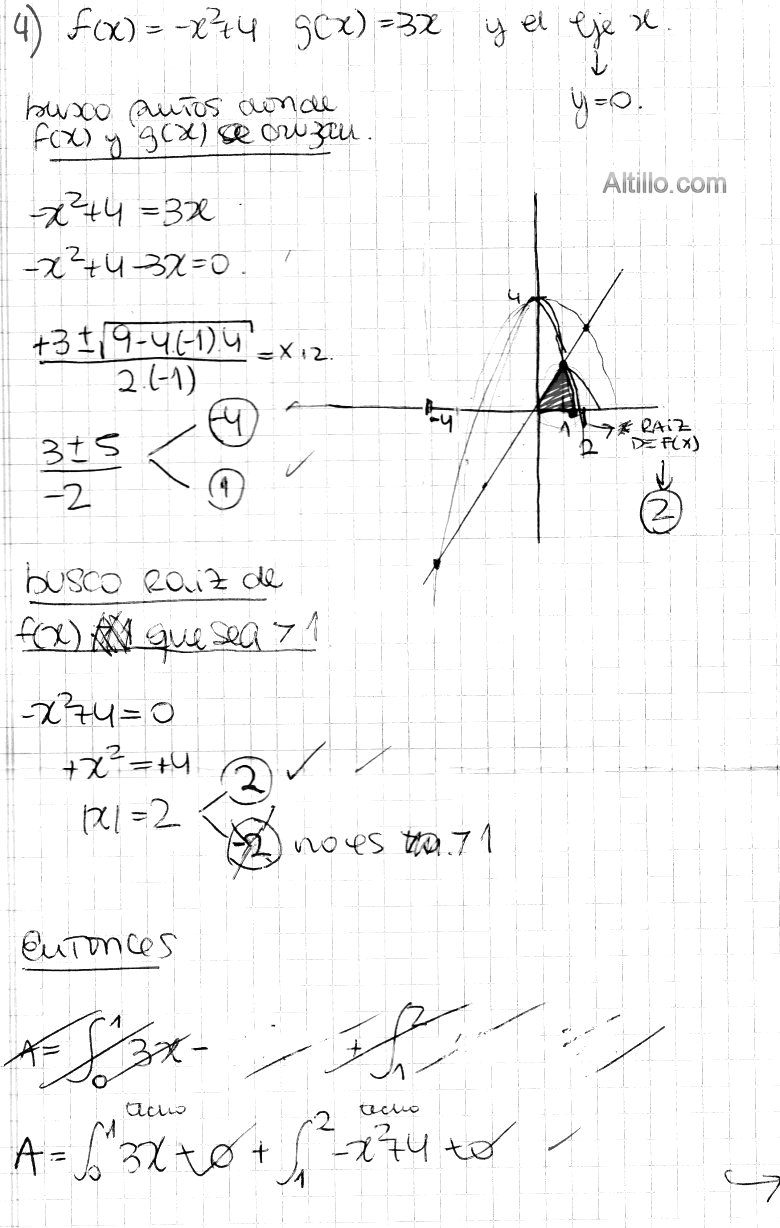 4) f(x) = -x²+4 g(x) = 3x y el eje x.
↓
y=0.
busco puntos donde
f(x) y g(x) se cruzan.
Altillo.com
-x²+4 = 3x
-x²+4-3x=0.
+3 ± √(9-4.(-1).4) / 2.(-1) = x 1,2.
3±5 / -2
-4
1
4
-4
1
2
→ * RAIZ
DE f(x)
↓
2
busco raiz de
f(x) que sea > 1
-x²+4=0
+x² = +4
|x| = 2
2
-2 no es > 1
Entonces
A = ∫₀¹ 3x - + ∫₁²
techo techo
A = ∫₀¹ 3x - 0 + ∫₁² -x²+4 - 0